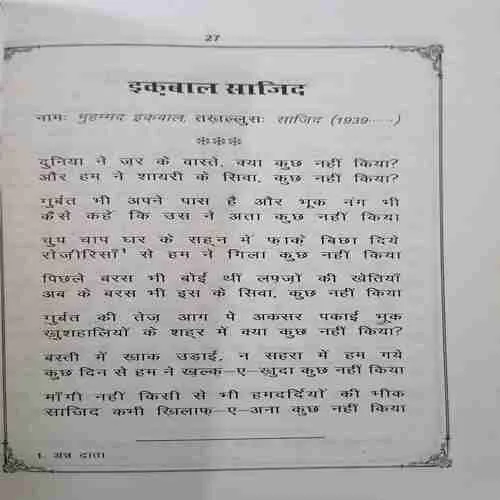 27
इक़बाल साजिद
नामः मुहम्मद इक़बाल, तख़ल्लुसः साजिद (1939----)
***
दुनिया ने ज़र के वास्ते, क्या कुछ नहीं किया?
और हम ने शायरी के सिवा, कुछ नहीं किया?
गुर्बत भी अपने पास है और भूक नंग भी
कैसे कहें कि उस ने अता कुछ नहीं किया
चुप चाप घर के सहन में फ़ाक़े बिछा दिये
रोज़ीरिसाँ¹ से हम ने गिला कुछ नहीं किया
पिछले बरस भी बोई थीं लफ़्ज़ों की खेतियाँ
अब के बरस भी इस के सिवा, कुछ नहीं किया
गुर्बत की तेज़ आग पे अकसर पकाई भूक
खुशहालियों के शहर में क्या कुछ नहीं किया?
बस्ती में ख़ाक उड़ाई, न सहरा में हम गये
कुछ दिन से हम ने ख़ल्क़-ए-ख़ुदा कुछ नहीं किया
माँगी नहीं किसी से भी हमदर्दियों की भीक
साजिद कभी ख़िलाफ़-ए-अना कुछ नहीं किया
1. अन्न दाता